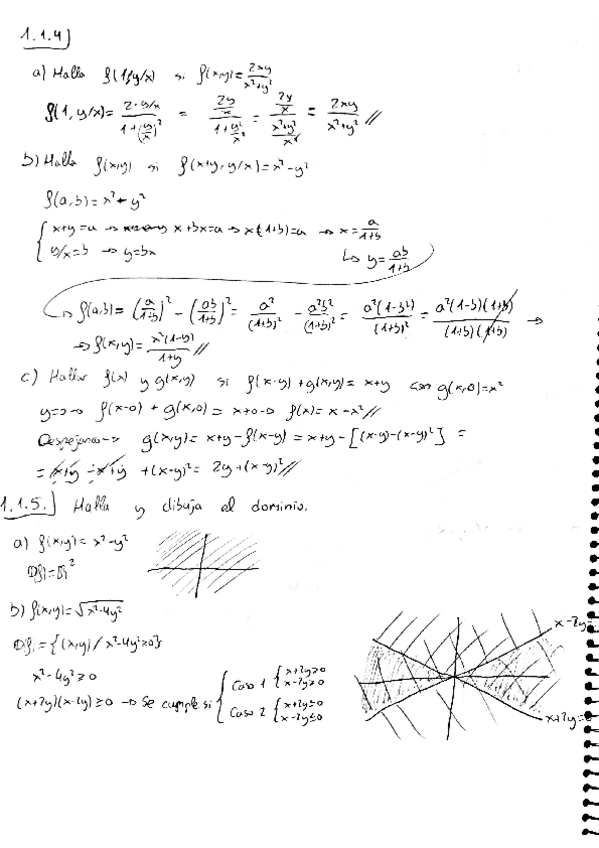 1.1.4)
a) Halla f(1,y/x) si f(x,y)= 2xy/(x²+y²)
f(1, y/x)= (2·y/x)/(1+(y/x)²) = (2y/x)/(1+y²/x²) = (2y/x)/((x²+y²)/x²) = 2xy/(x²+y²) //
b) Halla f(x,y) si f(x+y, y/x)=x²-y²
f(a,b)=x²-y²
x+y=a → x+bx=a → x(1+b)=a → x= a/(1+b)
y/x=b → y=bx ↳ y= ab/(1+b)
→ f(a,b)= (a/(1+b))² - (ab/(1+b))² = a²/(1+b)² - a²b²/(1+b)² = a²(1-b²)/(1+b)² = a²(1-b)(1+b)/((1+b)(1+b)) →
→ f(x,y)= x²(1-y)/(1+y) //
c) Hallar f(x) y g(x,y) si f(x-y)+g(x,y)= x+y con g(x,0)=x²
y=0 → f(x-0) + g(x,0) = x+0 → f(x)= x-x² //
Despejando → g(x,y)= x+y-f(x-y) = x+y-[(x-y)-(x-y)²] =
= x+y-x+y +(x-y)² = 2y+(x-y)² //
1.1.5.) Halla y dibuja el dominio.
a) f(x,y)= x²-y²
D(f)=ℝ²
b) f(x,y)=√(x²-4y²)
D(f)={(x,y)/x²-4y²≥0}
x²-4y²≥0
(x+2y)(x-2y)≥0 → Se cumple si
Caso 1 { x+2y≥0
x-2y≥0
Caso 2 { x+2y≤0
x-2y≤0
x-2y=
x+2y=